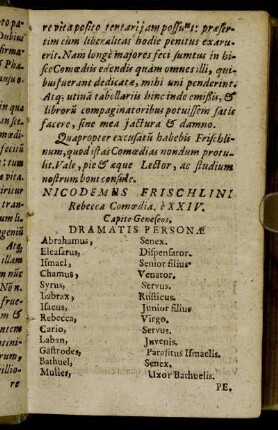 re vita posito tentari jam possunt: præser-
tim cùm liberalitas hodie penitus exaru-
erit. Nam longè majores feci sumtus in hi-
sce Comœdiis edendis quàm omnes illi, qui-
bus fuerant dedicatæ, mihi unì penderint.
Atq; utinã tabellariis hinc inde emissis, &
librorũ compaginatoribus potuissem satis
facere, sine mea jactura & damno.
Quapropter excusatũ habebis Frischli-
num, quod istas Comœdias nondum protu-
lit. Vale, pie & æque Lector, ac studium
nostrum boni consule.
NICODEMUS FRISCHLINI
Rebecca Comœdia, è XXIV.
Capite Geneseos.
DRAMATIS PERSONÆ
Abrahamus, Senex.
Eleasarus, Dispensator.
Ismael, Senior filius
Chamus, Venator.
Syrus, Servus.
Labrax, Rusticus.
Isacus, Junior filius
Rebecca, Virgo.
Cario, Servus.
Laban, Juvenis.
Gastrodes, Parasitus Ismaelis.
Bathuel, Senex.
Mulier, Uxor Bathuelis.
PE.